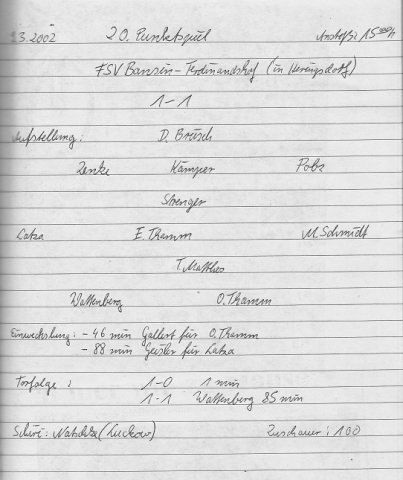 9.3.2002 20. Punktspiel Anstoß: 15 00 h
FSV Bansin - Ferdinandshof (in Heringsdorf)
1-1
Aufstellung: D. Brüsch
Zenke Kämper Pobs
Strenger
Latza E. Thamm M. Schmidt
T. Matthes
Wattenberg O. Thamm
Einwechslung: - 46 min Gallert für O. Thamm
- 88 min Geisler für Latza
Torfolge: 1-0 1 min
1-1 Wattenberg 85 min
Schiri: (Luckow) Zuschauer: 100